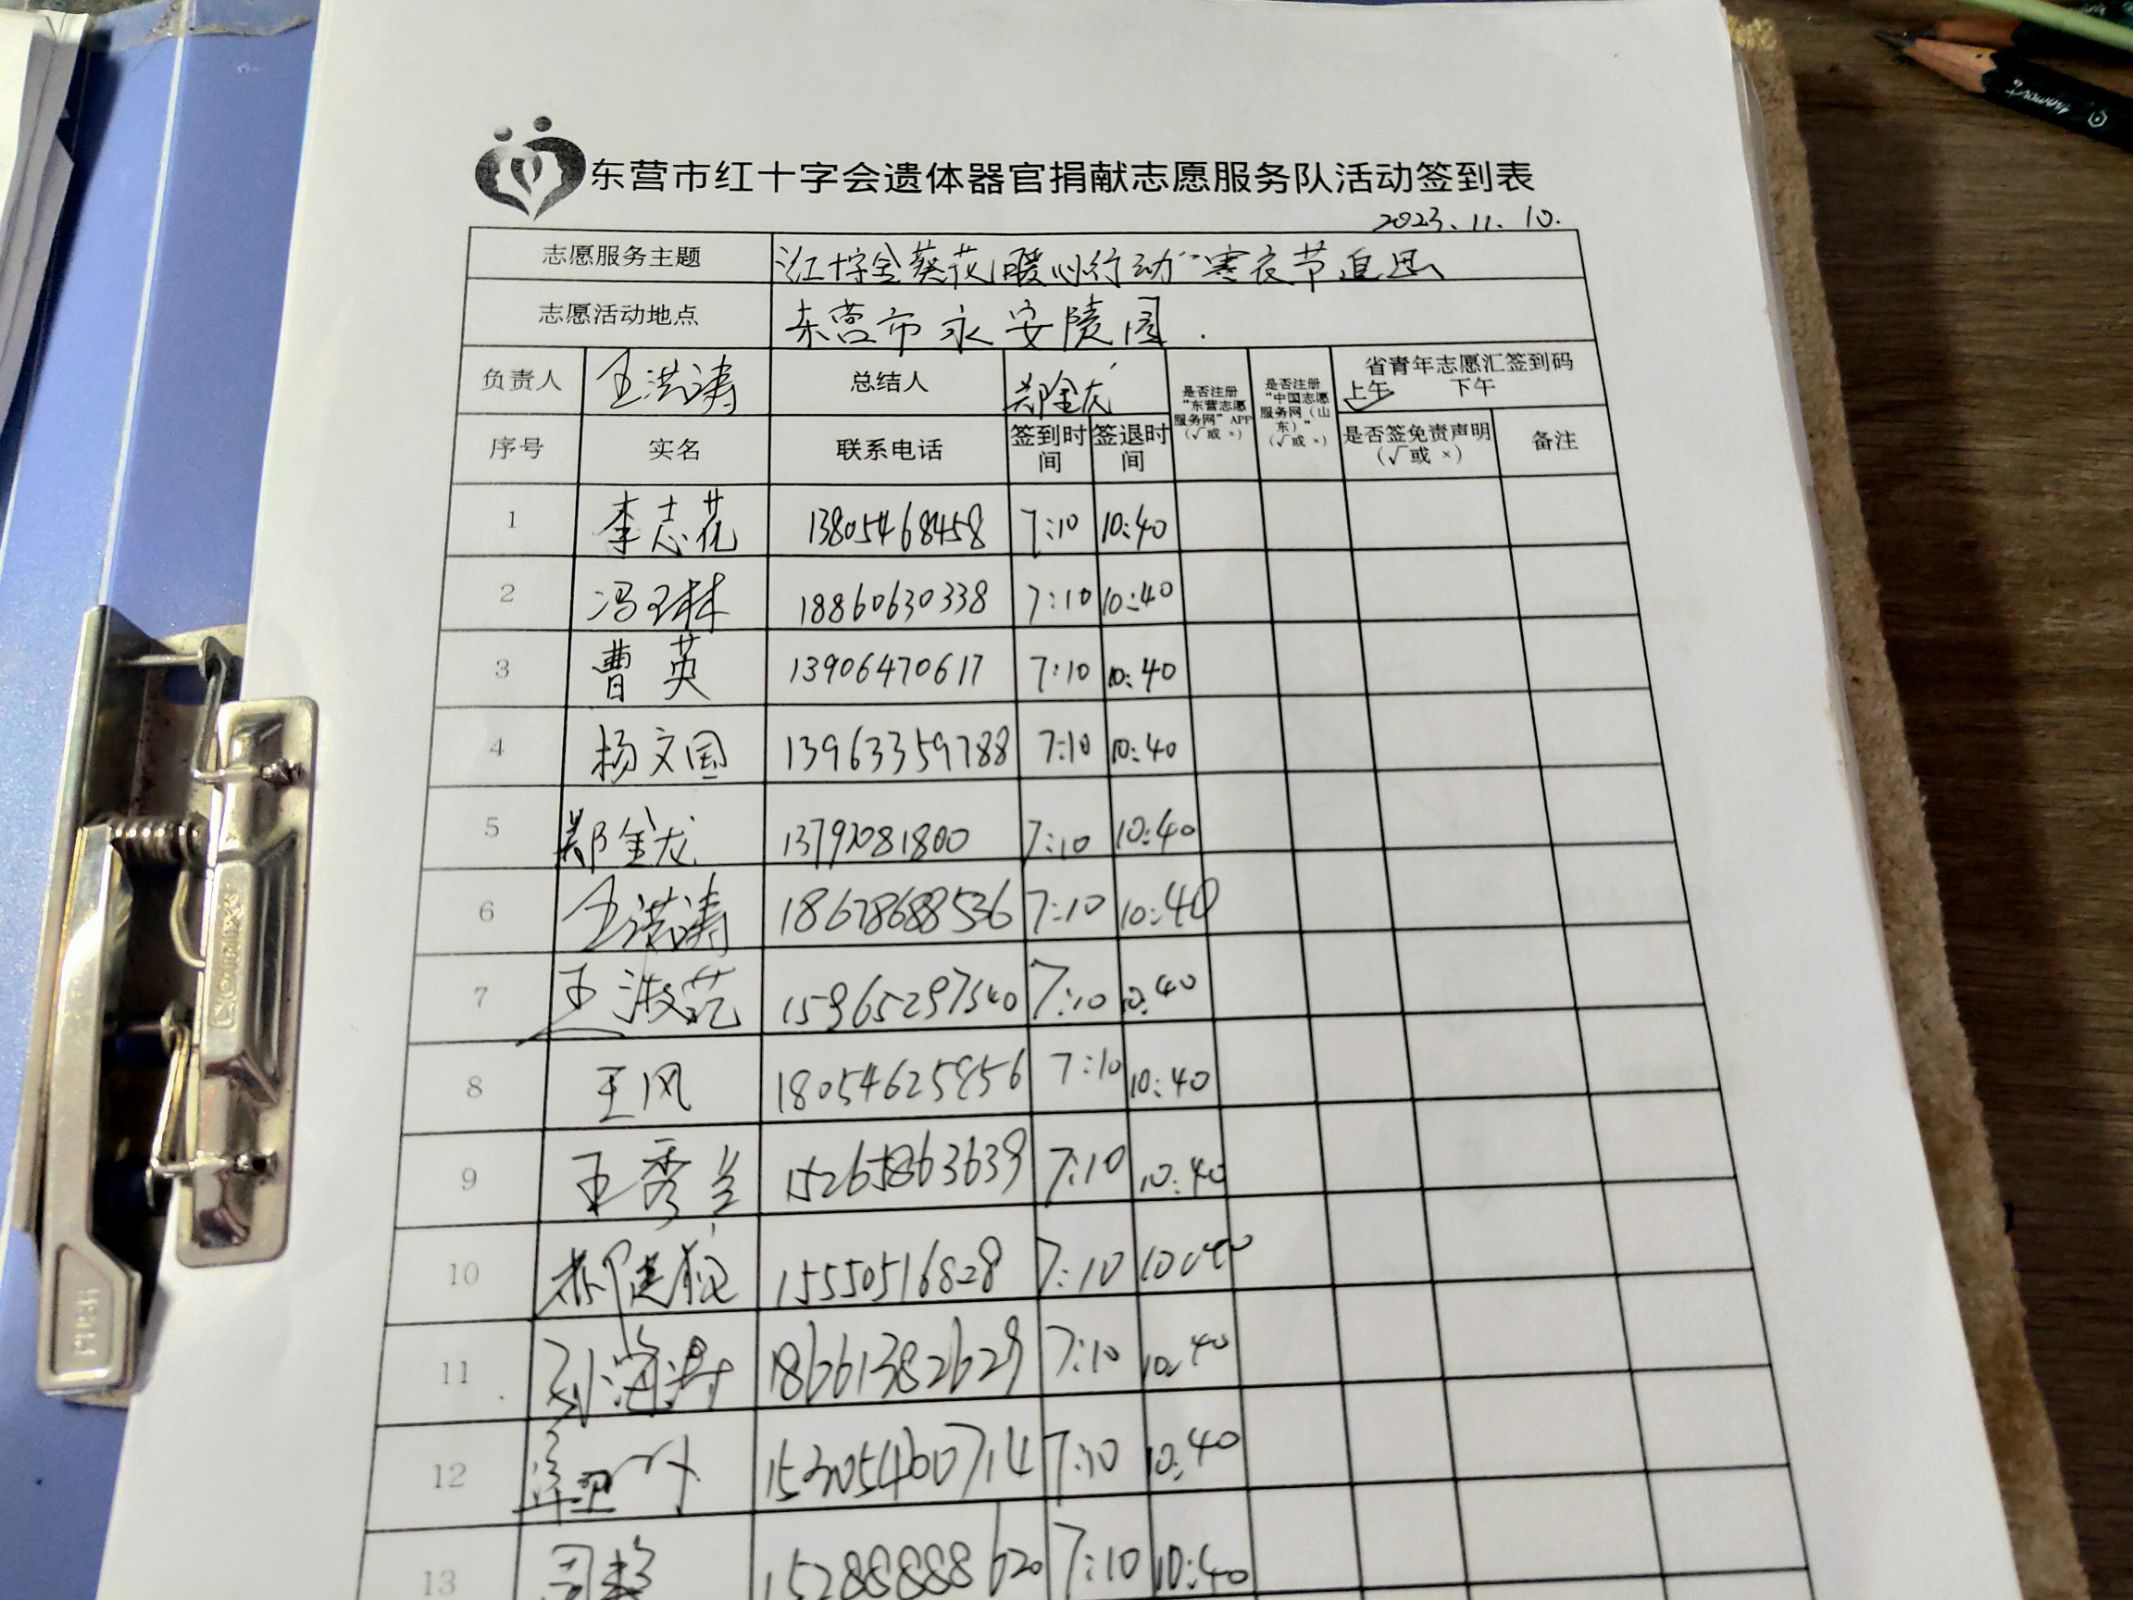 东营市红十字会遗体器官捐献志愿服务队活动签到表
2023.11.10.
志愿服务主题 红十字金葵花暖心行动"寒衣节追思
志愿活动地点 东营市永安陵园.
负责人 王洪涛 总结人 郑金龙 是否注册“东营志愿服务网”APP（√或×） 是否注册“中国志愿服务网（山东）”（√或×） 省青年志愿汇签到码 上午 下午
序号 实名 联系电话 签到时间 签退时间 是否签免责声明（√或×） 备注
1 李志花 13805468458 7:10 10:40
2 冯玉林 18860630338 7:10 10:40
3 曹英 13906470617 7:10 10:40
4 杨文国 13963359788 7:10 10:40
5 郑金龙 13792081800 7:10 10:40
6 王洪涛 18678688536 7:10 10:40
7 王淑范 15965297540 7:10 10:40
8 王风 18054625856 7:10 10:40
9 王秀兰 15265863639 7:10 10:40
10 15550516828 7:10 10:40
11 刘海涛 18661382629 7:10 10:40
12 15305460714 7:10 10:40
13 15288888620 7:10 10:40